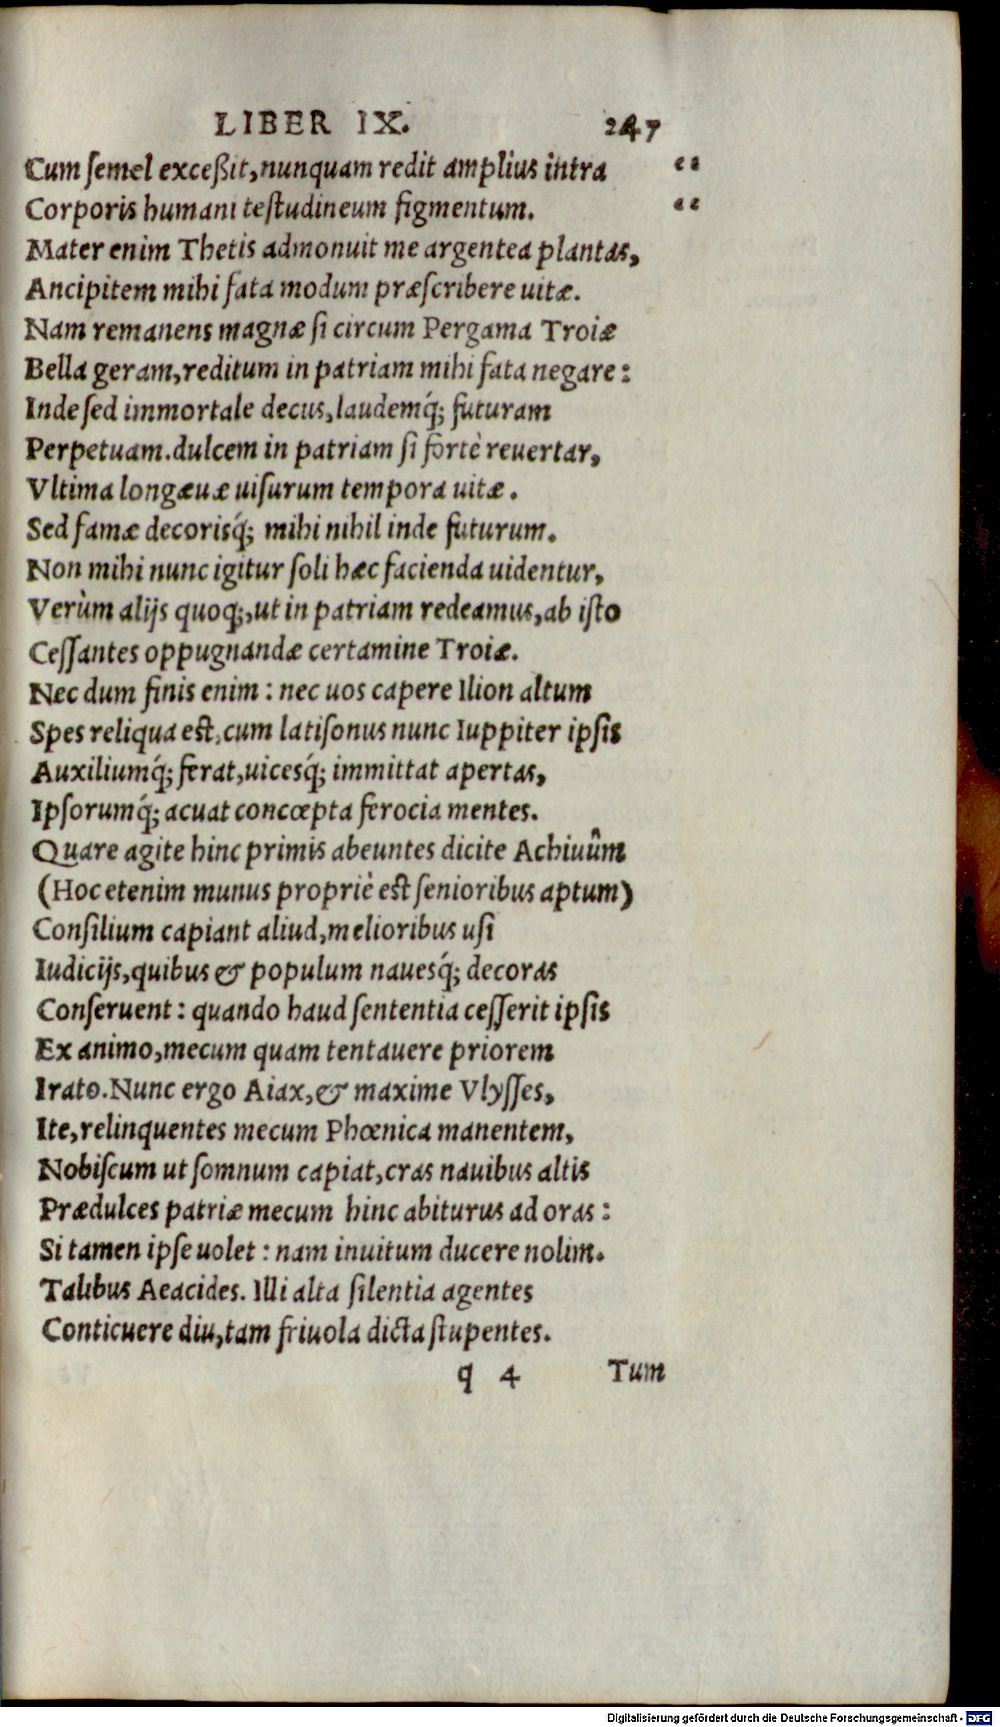 LIBER IX. 247
Cum ſemel exceßit, nunquam redit amplius intra “
Corporis humani teſtudineum figmentum. “
Mater enim Thetis admonuit me argentea plantas,
Ancipitem mihi fata modum præſcribere uitæ.
Nam remanens magnæ ſi circum Pergama Troiæ
Bella geram, reditum in patriam mihi fata negare:
Inde ſed immortale decus, laudemq́; futuram
Perpetuam. dulcem in patriam ſi fortè reuertar,
Vltima longæuæ uiſurum tempora uitæ.
Sed famæ decorisq́; mihi nihil inde futurum.
Non mihi nunc igitur ſoli hæc facienda uidentur,
Verùm alijs quoq;, ut in patriam redeamus, ab iſto
Ceſſantes oppugnandæ certamine Troiæ.
Nec dum finis enim: nec uos capere Ilion altum
Spes reliqua eſt, cum latiſonus nunc Iuppiter ipſis
Auxiliumq́; ferat, uicesq́; immittat apertas,
Ipſorumq́; acuat concœpta ferocia mentes.
Quare agite hinc primis abeuntes dicite Achiuûm
(Hoc etenim munus propriè eſt ſenioribus aptum)
Conſilium capiant aliud, melioribus uſi
Iudicijs, quibus & populum nauesq́; decoras
Conſeruent: quando haud ſententia ceſſerit ipſis
Ex animo, mecum quam tentauere priorem
Irato. Nunc ergo Aiax, & maxime Vlyſſes,
Ite, relinquentes mecum Phœnica manentem,
Nobiſcum ut ſomnum capiat, cras nauibus altis
Prædulces patriæ mecum hinc abiturus ad oras:
Si tamen ipſe uolet: nam inuitum ducere nolim.
Talibus Aeacides. Illi alta ſilentia agentes
Conticuere diu, tam friuola dicta ſtupentes.
q 4 Tum
Digitalisierung gefördert durch die Deutsche Forschungsgemeinschaft - DFG